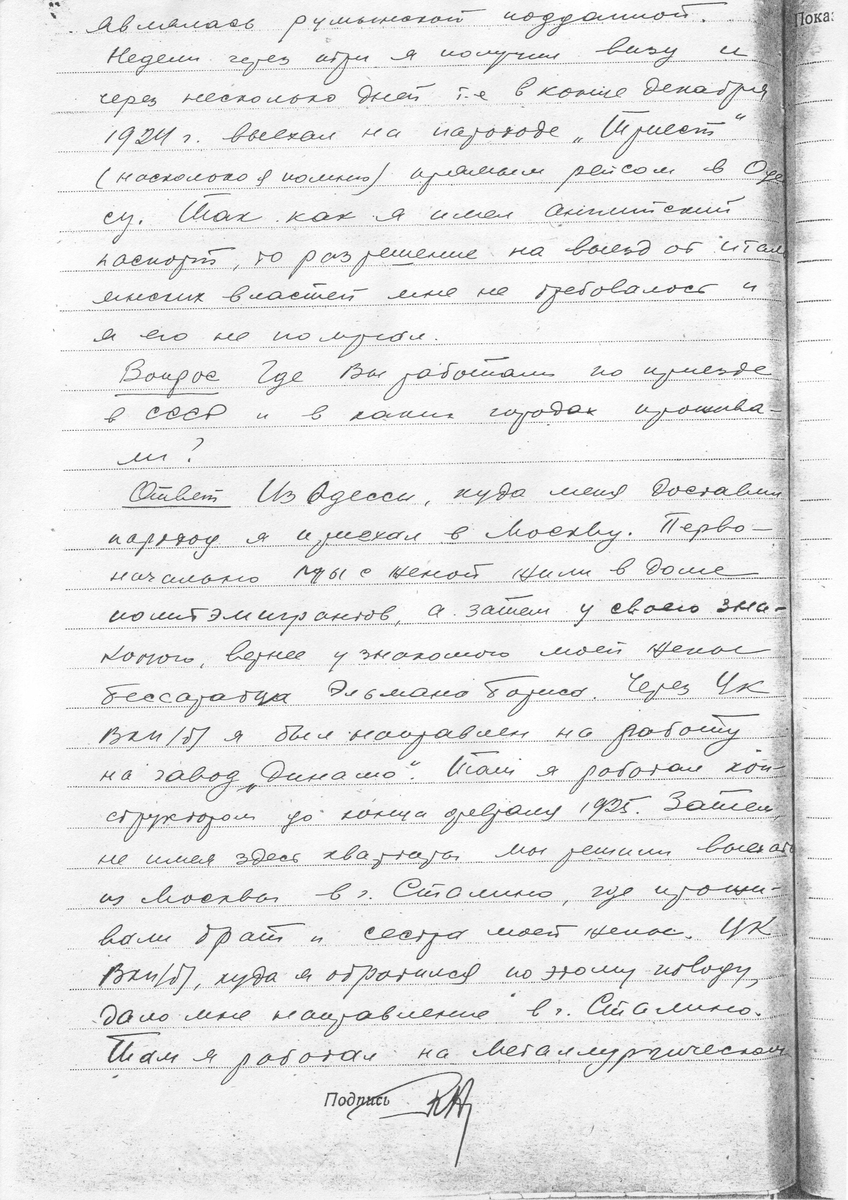 являлась румынской подданной.
Недели через три я получил визу и
через несколько дней т.е в конце декабря
1924 г. выехал на пароходе „Триест"
(насколько я помню) прямым рейсом в Оде
ссу. Так как я имел английский
паспорт, то разрешение на выезд от италь
янских властей мне не требовалось и
я его не получал.
Вопрос Где Вы работали по приезде
в СССР и в каких городах прожива-
ли?
Ответ Из Одессы, куда меня доставил
пароход я приехал в Москву. Перво-
начально мы с женой жили в доме
политэмигрантов, а затем у своего зна-
комого, вернее у знакомого моей жены
бессарабца Эльмана Бориса. Через ЦК
ВКП/б/ я был направлен на работу
на завод „Динамо". Там я работал кон-
структором до конца февраля 1925. Затем,
не имея здесь квартиры мы решили выехать
из Москвы в г. Сталино, где прожи-
вали брат и сестра моей жены. ЦК
ВКП/б/, куда я обратился по этому поводу,
дало мне направление в г. Сталино.
Там я работал на Металлургическом
Подпись
Пока